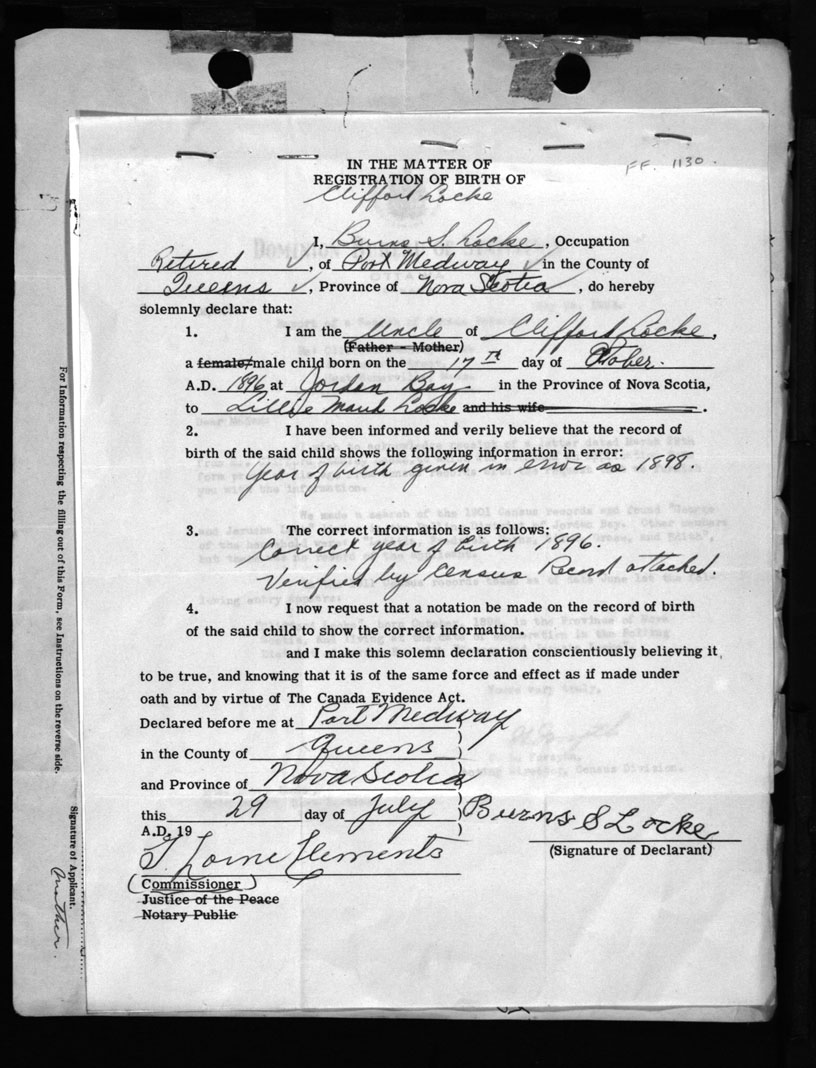 IN THE MATTER OF
FF. 1130.
REGISTRATION OF BIRTH OF
Clifford Locke
I, Burns S. Locke, Occupation
Retired ✓, of Port Medway ✓ in the County of
Queens ✓, Province of Nova Scotia, do hereby
solemnly declare that:
1. I am the Uncle of Clifford Locke,
(Father - Mother)
a female/male child born on the 17th day of October.
A.D. 1896 at Jordan Bay in the Province of Nova Scotia,
to Lillie Maud Locke and his wife .
2. I have been informed and verily believe that the record of
birth of the said child shows the following information in error:
Year of birth given in error as 1898.
3. The correct information is as follows:
Correct year of birth 1896.
Verified by Census Record attached.
4. I now request that a notation be made on the record of birth
of the said child to show the correct information.
and I make this solemn declaration conscientiously believing it
to be true, and knowing that it is of the same force and effect as if made under
oath and by virtue of The Canada Evidence Act.
Declared before me at Port Medway )
in the County of Queens )
and Province of Nova Scotia )
this 29 day of July )
A.D. 19 )
Burns S Locke
(Signature of Declarant)
Lorne Clements
(Commissioner)
Justice of the Peace
Notary Public
For Information respecting the filling out of this Form, see Instructions on the reverse side.
Signature of Applicant.
Mother.